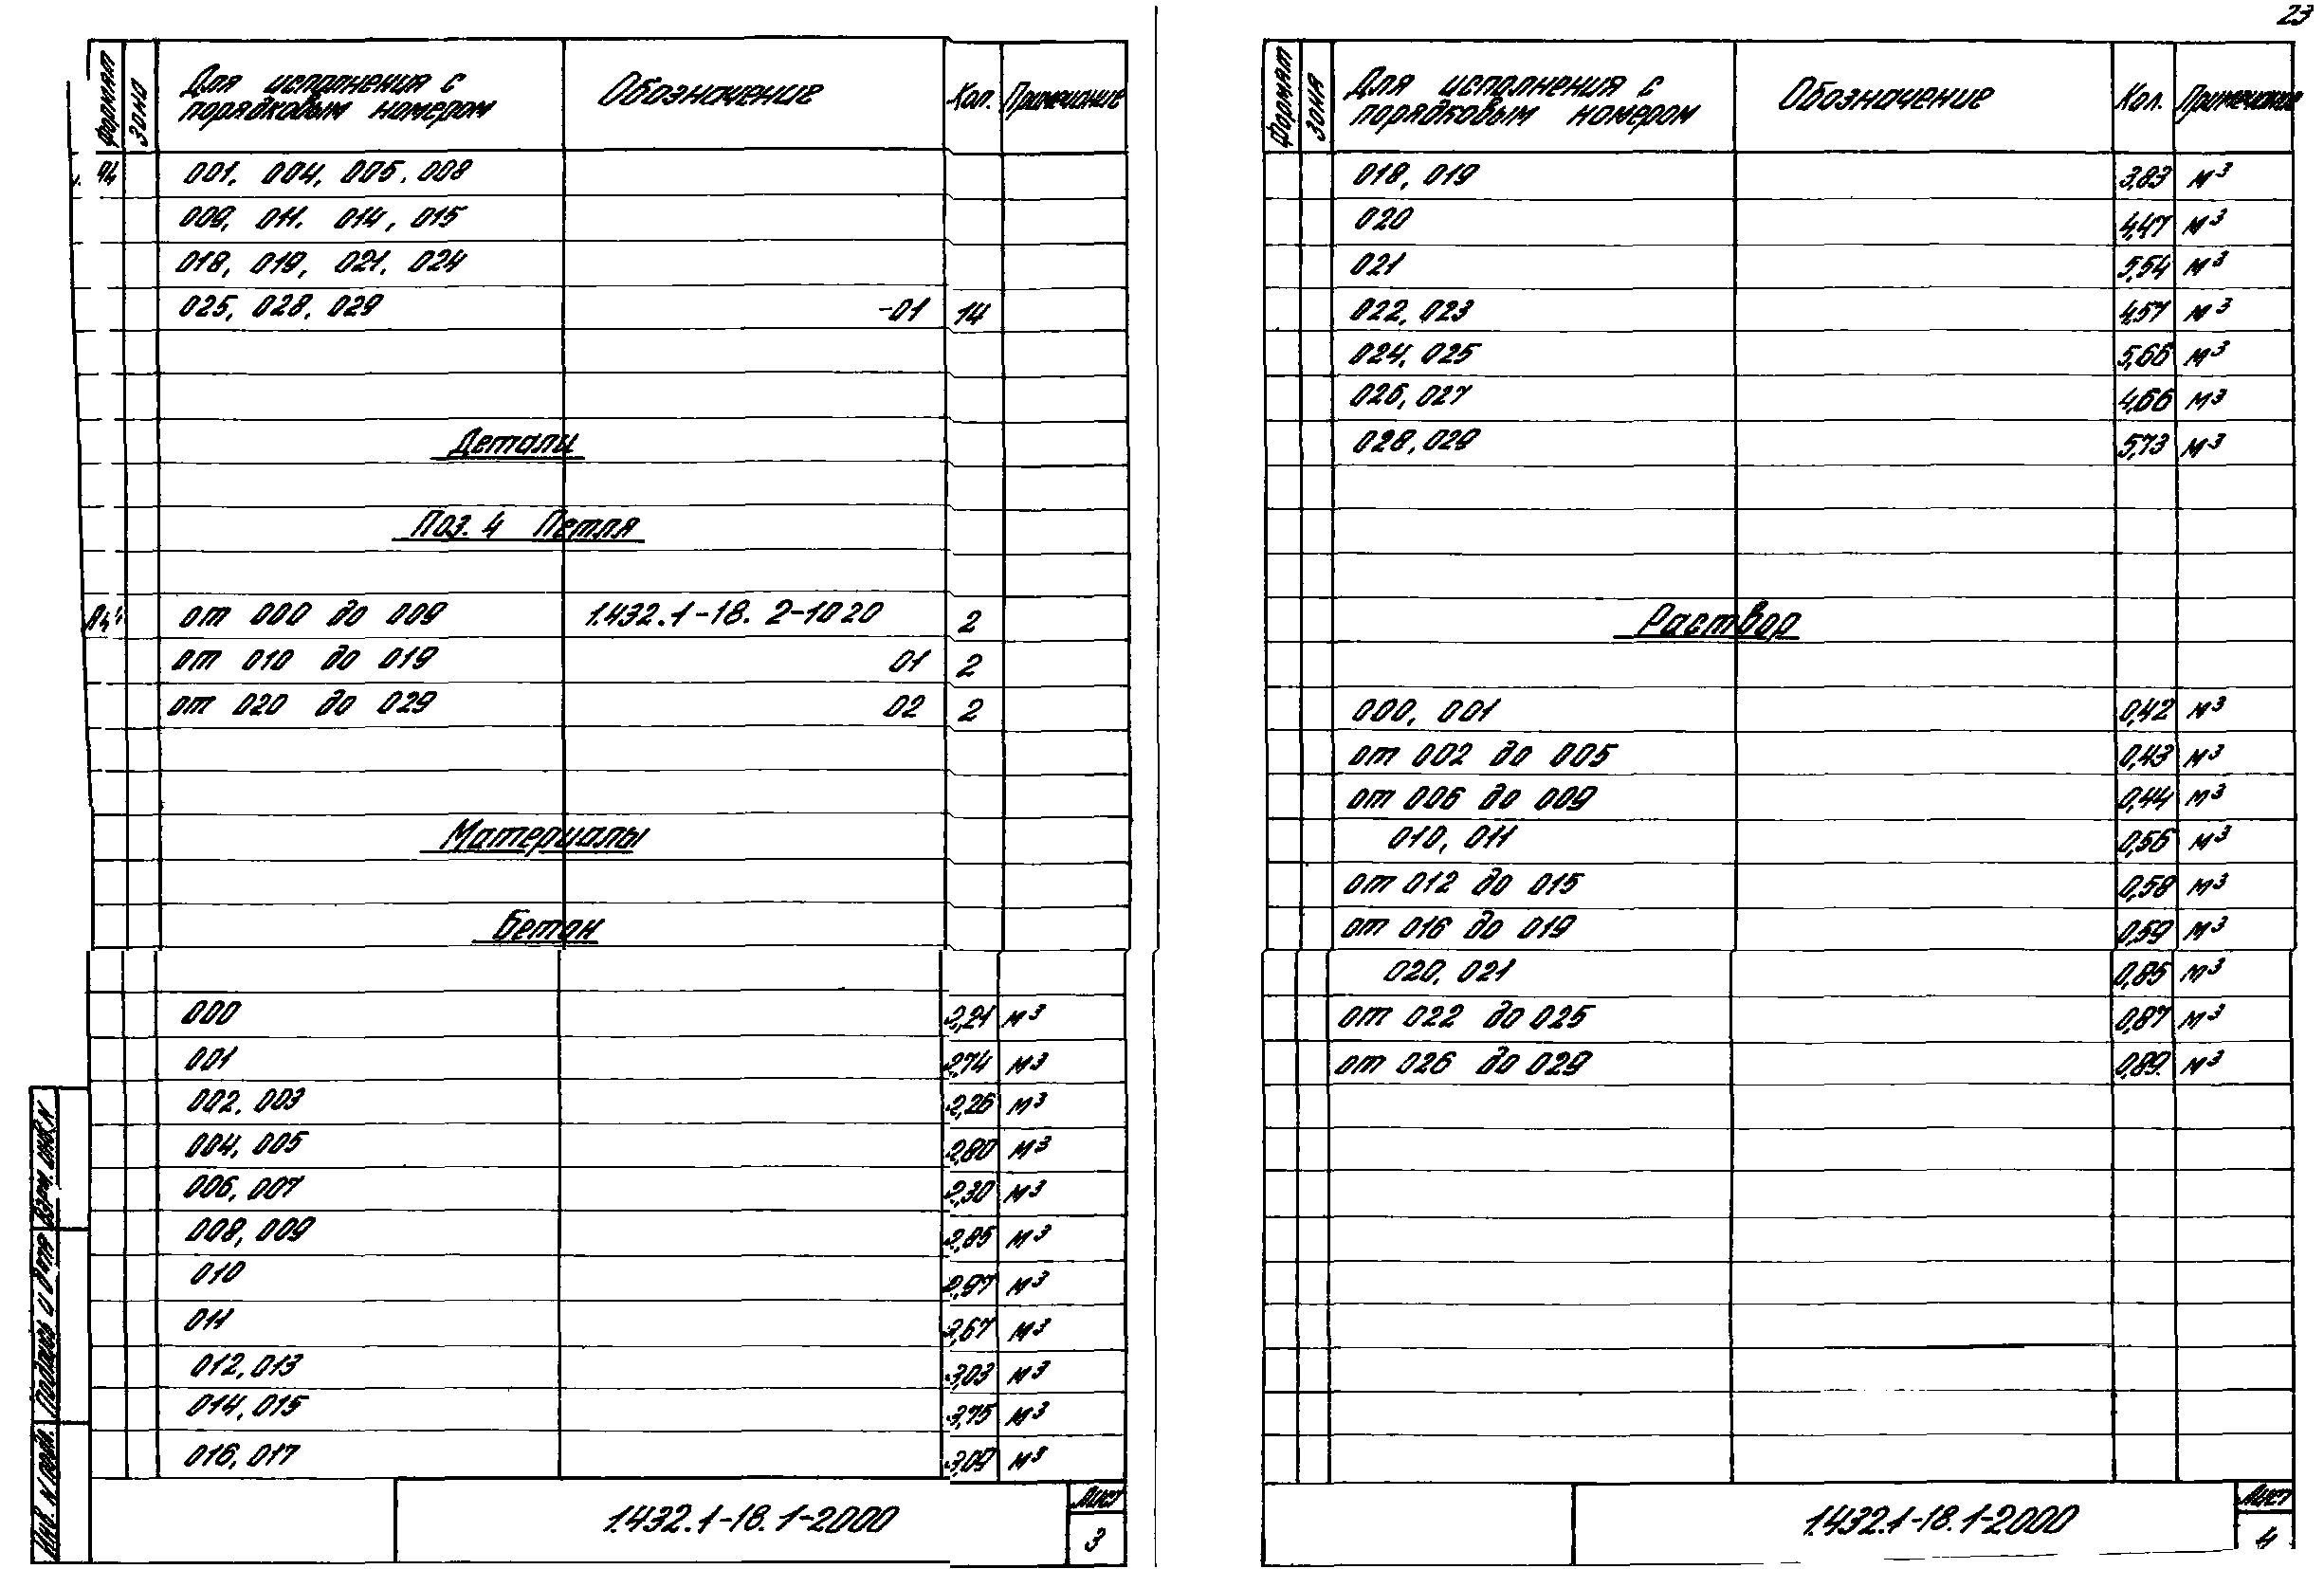 23
Формат
Зона
Для исполнения с порядковым номером
Обозначение
Кол.
Примечание
А4 001, 004, 005, 008
009, 011, 014, 015
018, 019, 021, 024
025, 028, 029 -01 14
Детали
Поз. 4 Петля
А4 от 000 до 009 1.432.1-18.2-1020 2
от 010 до 019 01 2
от 020 до 029 02 2
Материалы
Бетон
000 2,21 м³
001 2,74 м³
002, 003 2,26 м³
004, 005 2,80 м³
006, 007 2,30 м³
008, 009 2,85 м³
010 2,97 м³
011 3,67 м³
012, 013 3,03 м³
014, 015 3,75 м³
016, 017 3,09 м³
Инв. N подл. Подпись и дата Взам. инв. N
1.432.1-18.1-2000
Лист
3
Формат
Зона
Для исполнения с порядковым номером
Обозначение
Кол.
Примечание
018, 019 3,83 м³
020 4,47 м³
021 5,54 м³
022, 023 4,57 м³
024, 025 5,66 м³
026, 027 4,66 м³
028, 029 5,73 м³
Раствор
000, 001 0,42 м³
от 002 до 005 0,43 м³
от 006 до 009 0,44 м³
010, 011 0,56 м³
от 012 до 015 0,58 м³
от 016 до 019 0,59 м³
020, 021 0,85 м³
от 022 до 025 0,87 м³
от 026 до 029 0,89 м³
1.432.1-18.1-2000
Лист
4